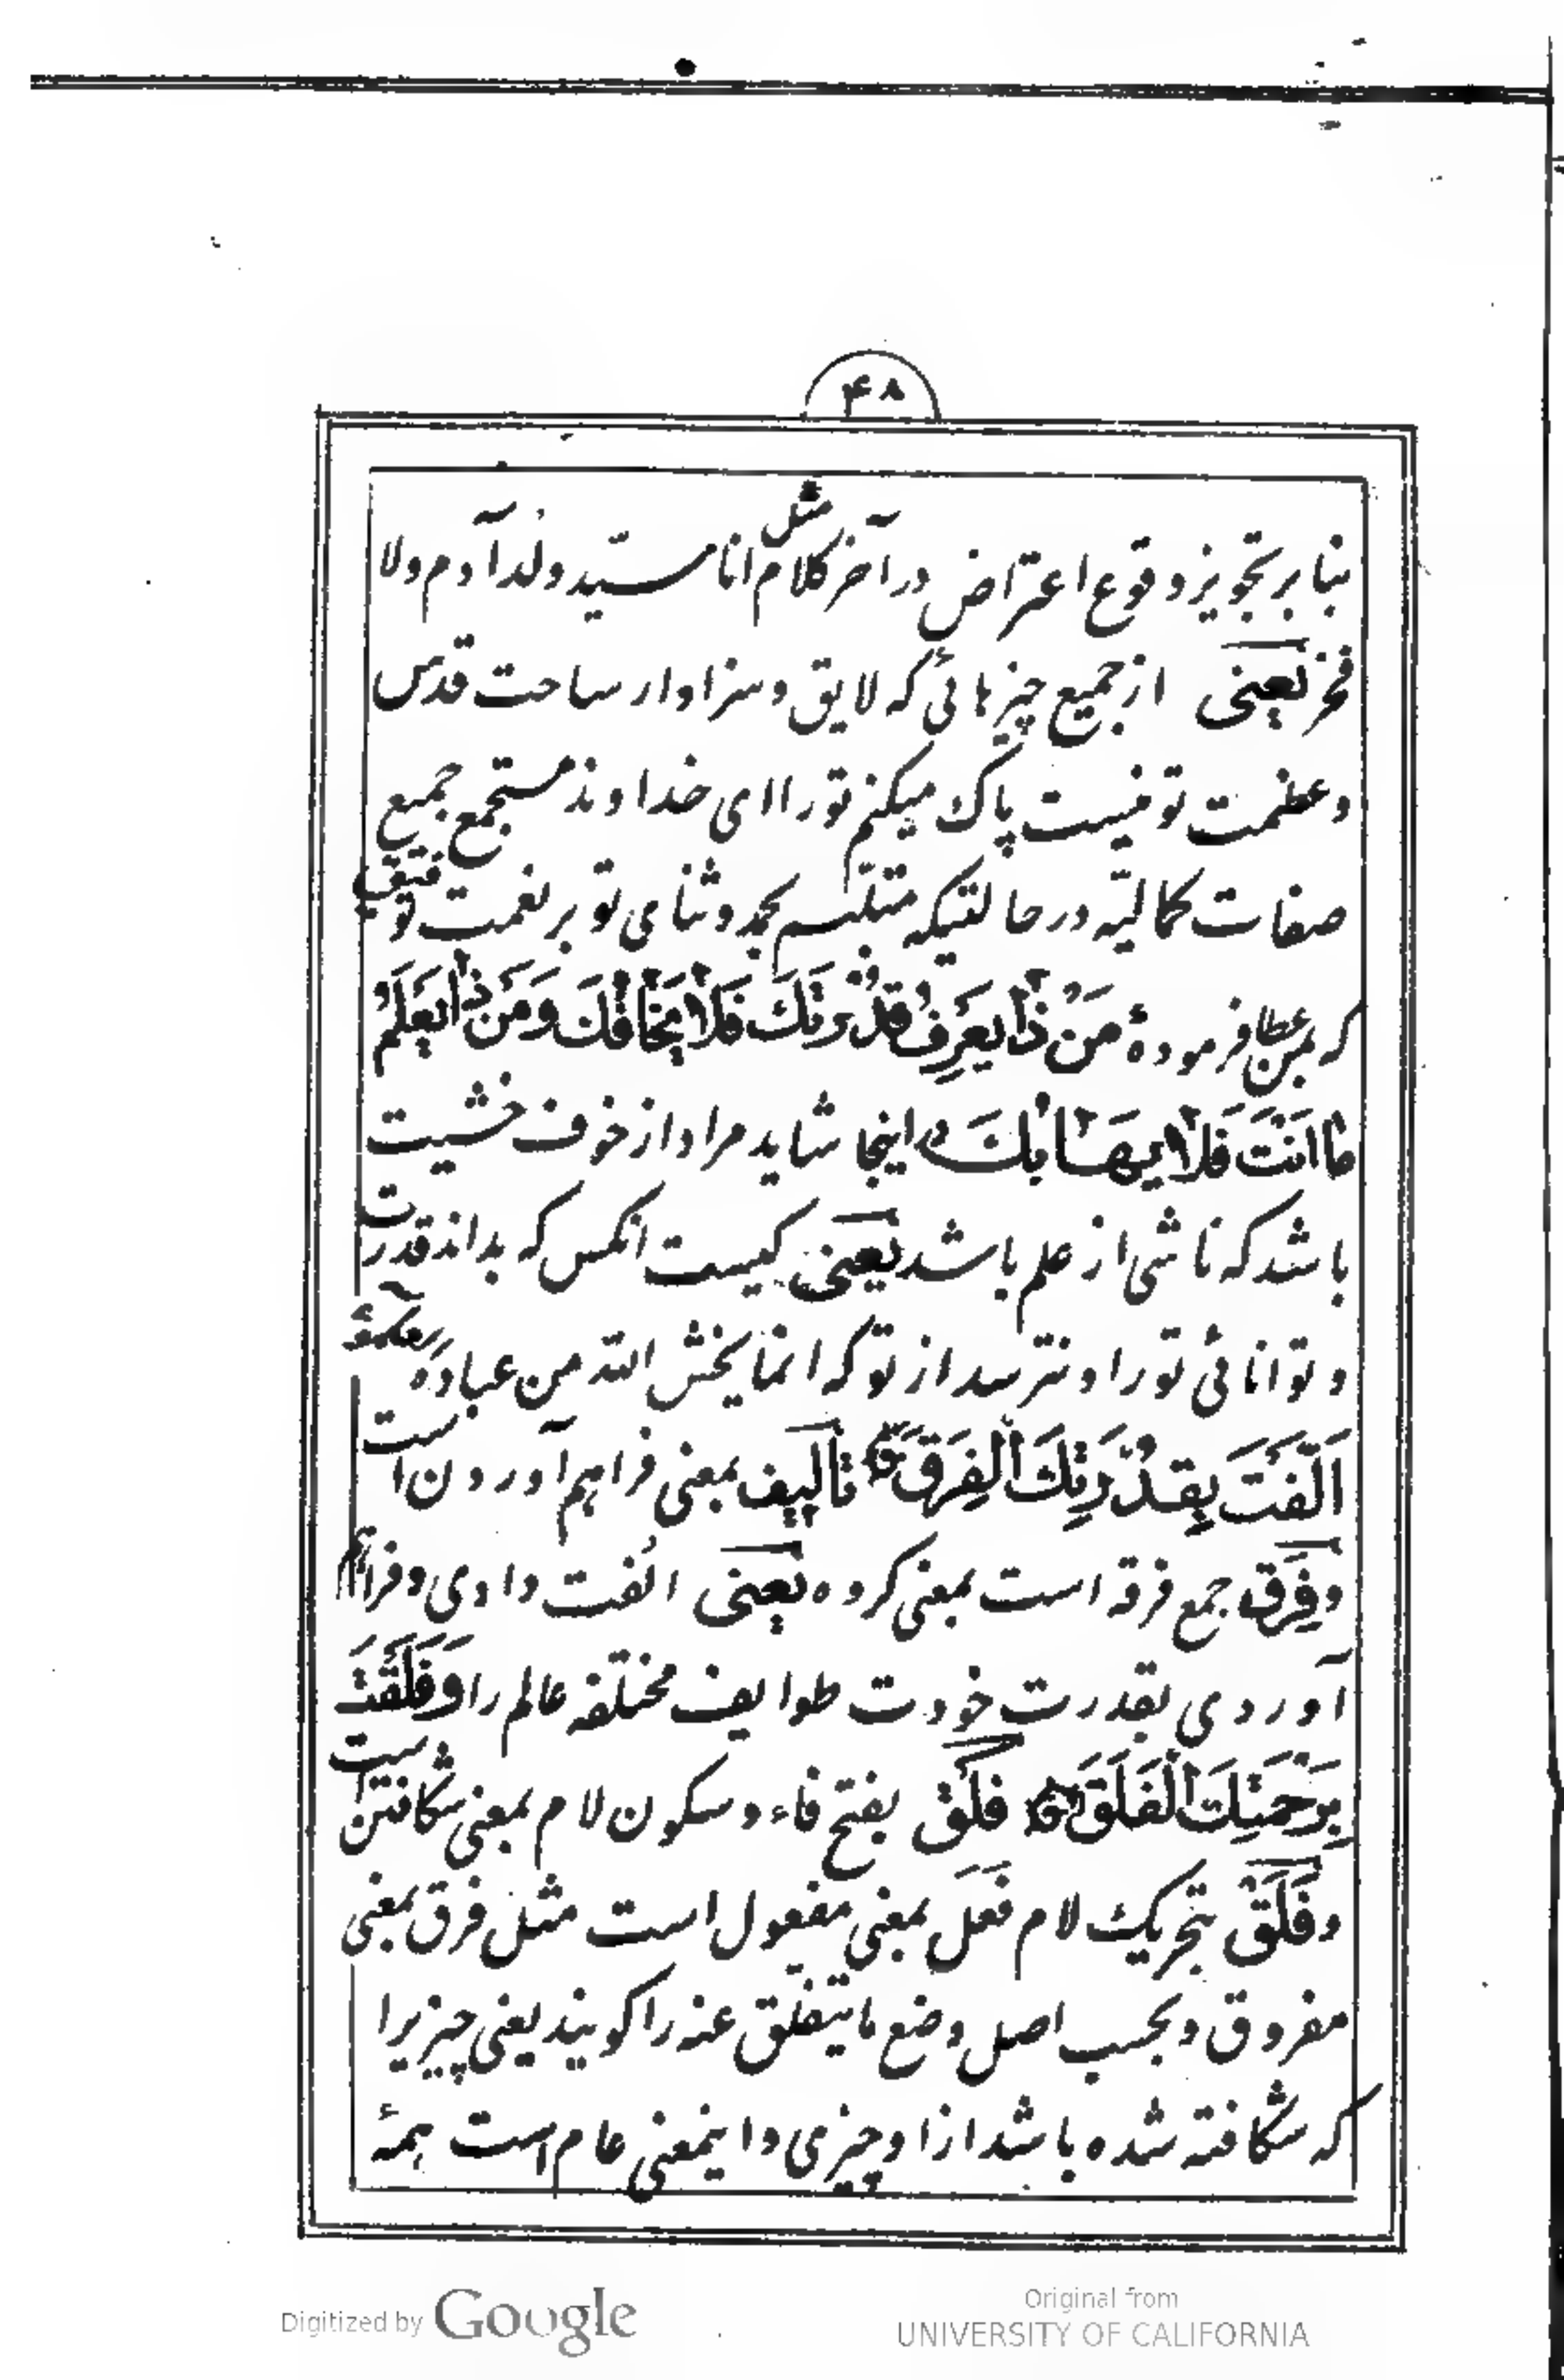 ۴۸
بنابر تجویز وقوع اعتراض در آخر کلام مثل انا سیّد ولد آدم ولا
فخر یعنی از جمیع چیزهائی که لایق و سزاوار ساحت قدس
و عظمت تو نیست پاک میکنم تو را ای خداوند مستجمع جمیع
صفات کمالیّه در حالتیکه متلبّسم بحمد و ثنای تو بر نعمت توفیق
که بمن عطا فرمودهٔ مَنْ ذا یَعْرِفُ قُدْرَتَکَ فَلا یَخافُکَ وَمَن ذا یَعْلَمُ
ما اَنْتَ فَلا یَهابُکَ اینجا شاید مراد از خوف خشیت
باشد که ناشی از علم باشد یعنی کیست انکس که بداند قدرت
و توانائی تو را و نترسد از تو که انما یخشی الله من عباده
اَلَّفْتَ بِقُدْرَتِكَ الْفِرَقَ تألیف بمعنی فراهم آوردن است
وفِرَق جمع فرقه است بمعنی کروه یعنی الفت دادی و فراهم
آوردی بقدرت خودت طوایف مختلفه عالم را وَفَلَقْتَ
بِرَحْمَتِكَ الْفَلَقَ فلْق بفتح فاء و سکون لام بمعنی شکافتن است
وفَلَقْ بتحریک لام فَعَل بمعنی مفعول است مثل فرق بمعنی
مفروق و بحسب اصل وضع ما یتفلّق عنه را کویند یعنی چیزیرا
که شکافته شده باشد ازا و چیزی و اینمعنی عام است همهٔ
Digitized by Google
Original from
UNIVERSITY OF CALIFORNIA